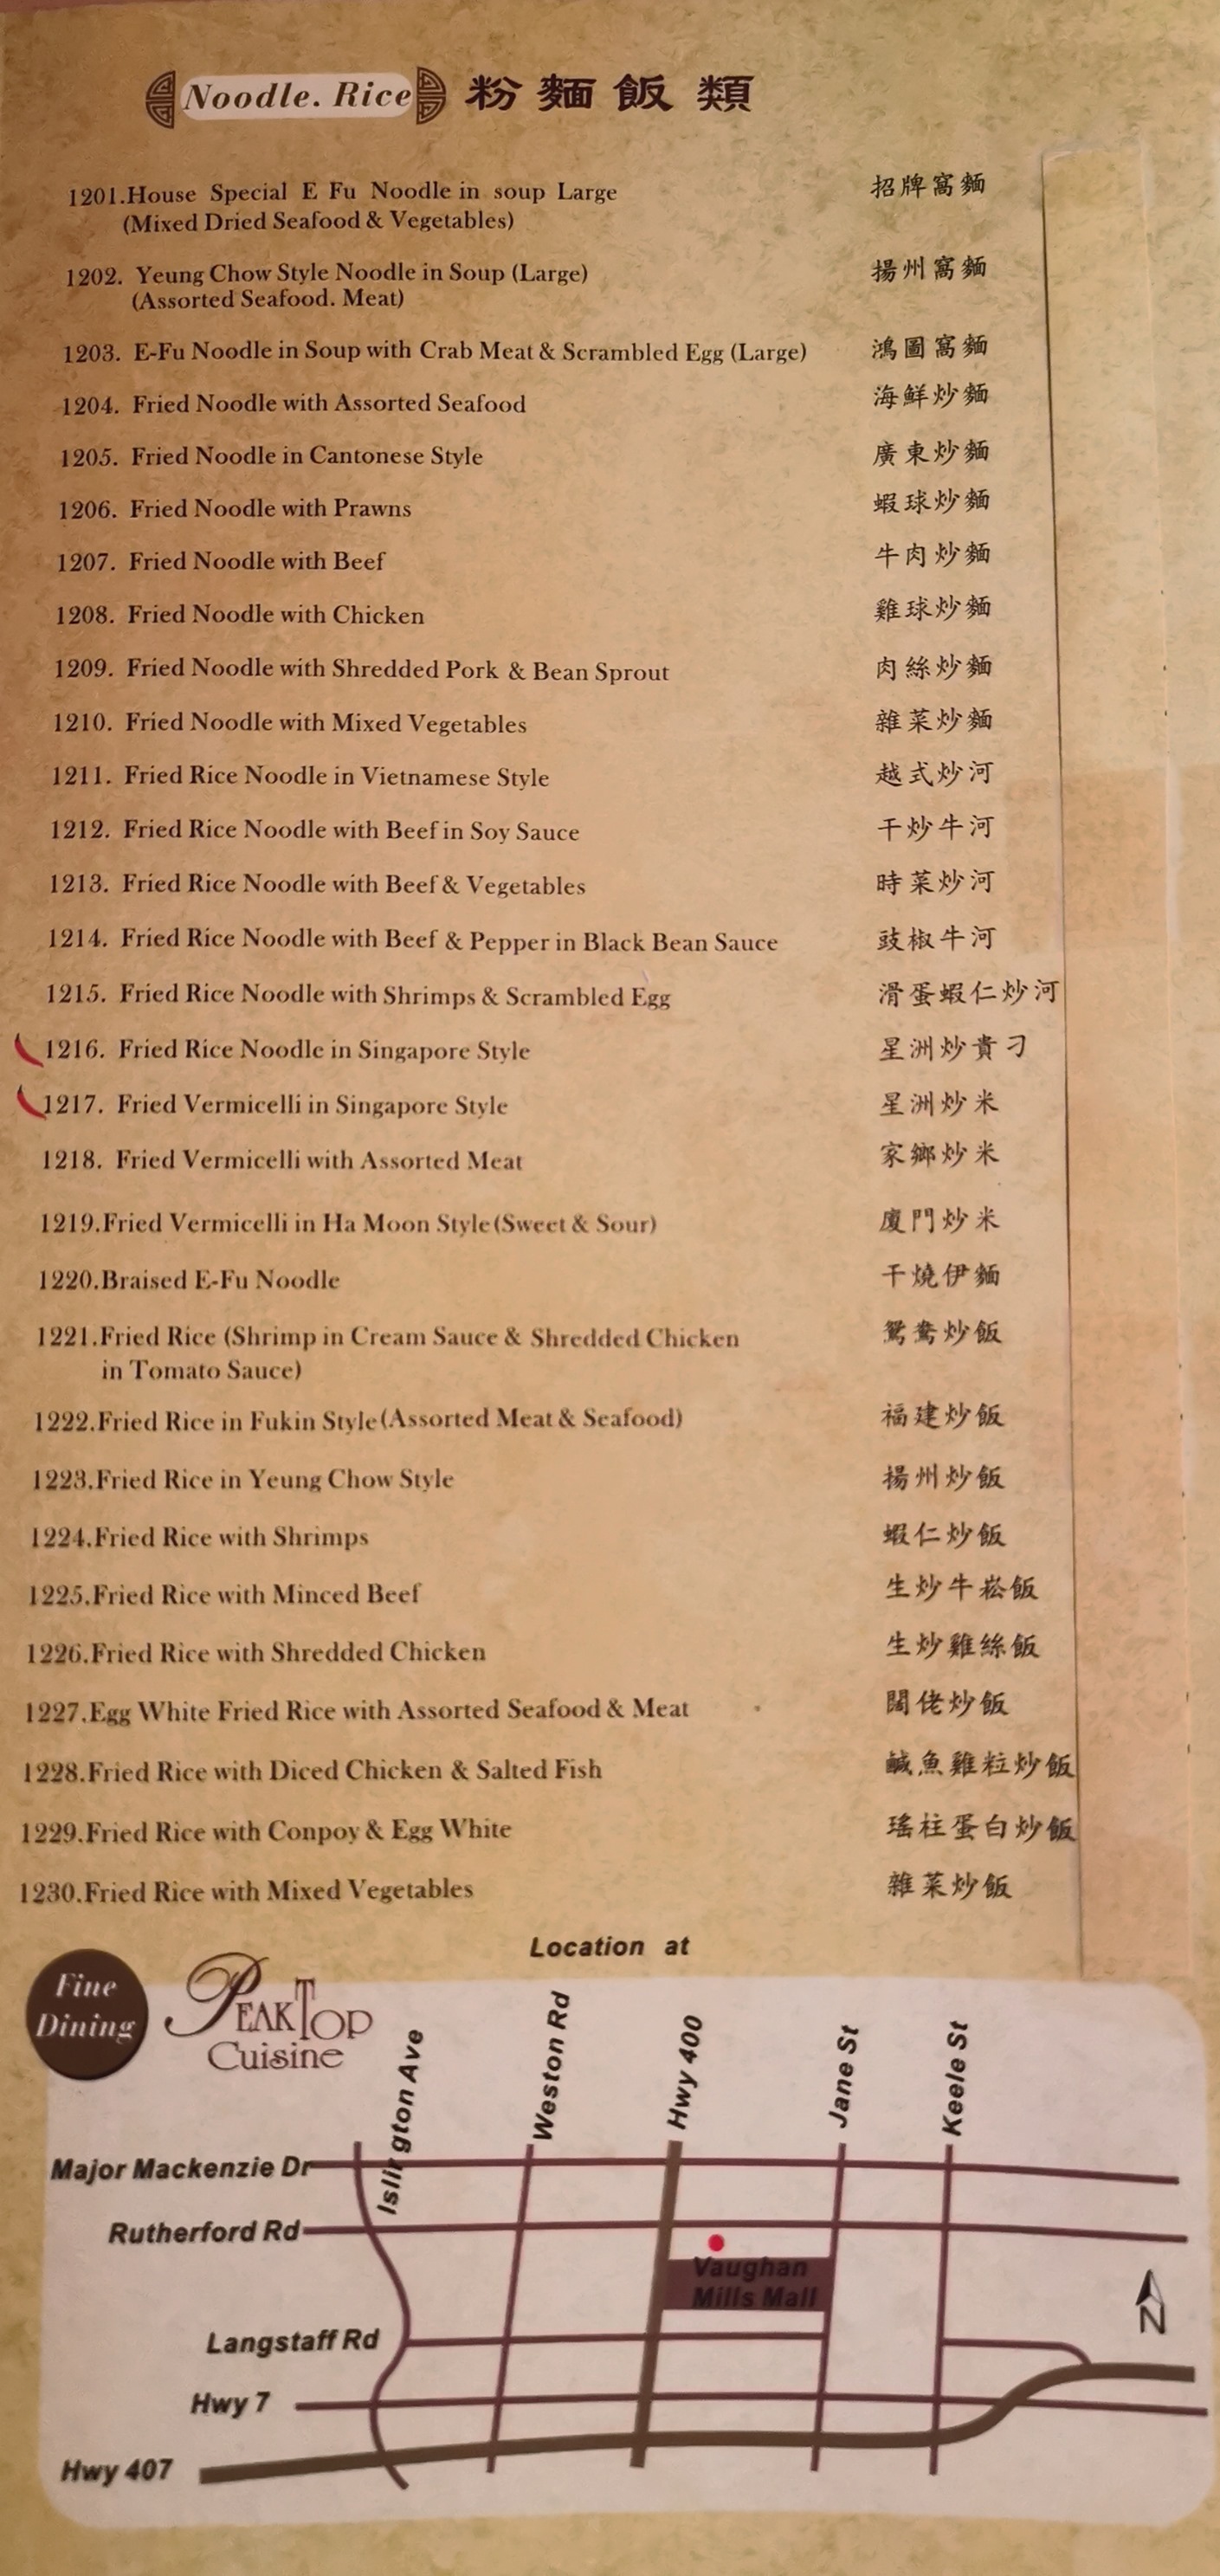 Noodle. Rice 粉麵飯類
1201.House Special E Fu Noodle in soup Large 招牌窩麵
(Mixed Dried Seafood & Vegetables)
1202. Yeung Chow Style Noodle in Soup (Large) 揚州窩麵
(Assorted Seafood. Meat)
1203. E-Fu Noodle in Soup with Crab Meat & Scrambled Egg (Large) 鴻圖窩麵
1204. Fried Noodle with Assorted Seafood 海鮮炒麵
1205. Fried Noodle in Cantonese Style 廣東炒麵
1206. Fried Noodle with Prawns 蝦球炒麵
1207. Fried Noodle with Beef 牛肉炒麵
1208. Fried Noodle with Chicken 雞球炒麵
1209. Fried Noodle with Shredded Pork & Bean Sprout 肉絲炒麵
1210. Fried Noodle with Mixed Vegetables 雜菜炒麵
1211. Fried Rice Noodle in Vietnamese Style 越式炒河
1212. Fried Rice Noodle with Beef in Soy Sauce 干炒牛河
1213. Fried Rice Noodle with Beef & Vegetables 時菜炒河
1214. Fried Rice Noodle with Beef & Pepper in Black Bean Sauce 豉椒牛河
1215. Fried Rice Noodle with Shrimps & Scrambled Egg 滑蛋蝦仁炒河
1216. Fried Rice Noodle in Singapore Style 星洲炒貴刁
1217. Fried Vermicelli in Singapore Style 星洲炒米
1218. Fried Vermicelli with Assorted Meat 家鄉炒米
1219.Fried Vermicelli in Ha Moon Style(Sweet & Sour) 廈門炒米
1220.Braised E-Fu Noodle 干燒伊麵
1221.Fried Rice (Shrimp in Cream Sauce & Shredded Chicken 鴛鴦炒飯
in Tomato Sauce)
1222.Fried Rice in Fukin Style(Assorted Meat & Seafood) 福建炒飯
1223.Fried Rice in Yeung Chow Style 揚州炒飯
1224.Fried Rice with Shrimps 蝦仁炒飯
1225.Fried Rice with Minced Beef 生炒牛崧飯
1226.Fried Rice with Shredded Chicken 生炒雞絲飯
1227.Egg White Fried Rice with Assorted Seafood & Meat 闊佬炒飯
1228.Fried Rice with Diced Chicken & Salted Fish 鹹魚雞粒炒飯
1229.Fried Rice with Conpoy & Egg White 瑤柱蛋白炒飯
1230.Fried Rice with Mixed Vegetables 雜菜炒飯
Location at
Fine
Dining
PEAK TOP
Cuisine
Islington Ave
Weston Rd
Hwy 400
Jane St
Keele St
Major Mackenzie Dr
Rutherford Rd
Vaughan
Mills Mall
N
Langstaff Rd
Hwy 7
Hwy 407